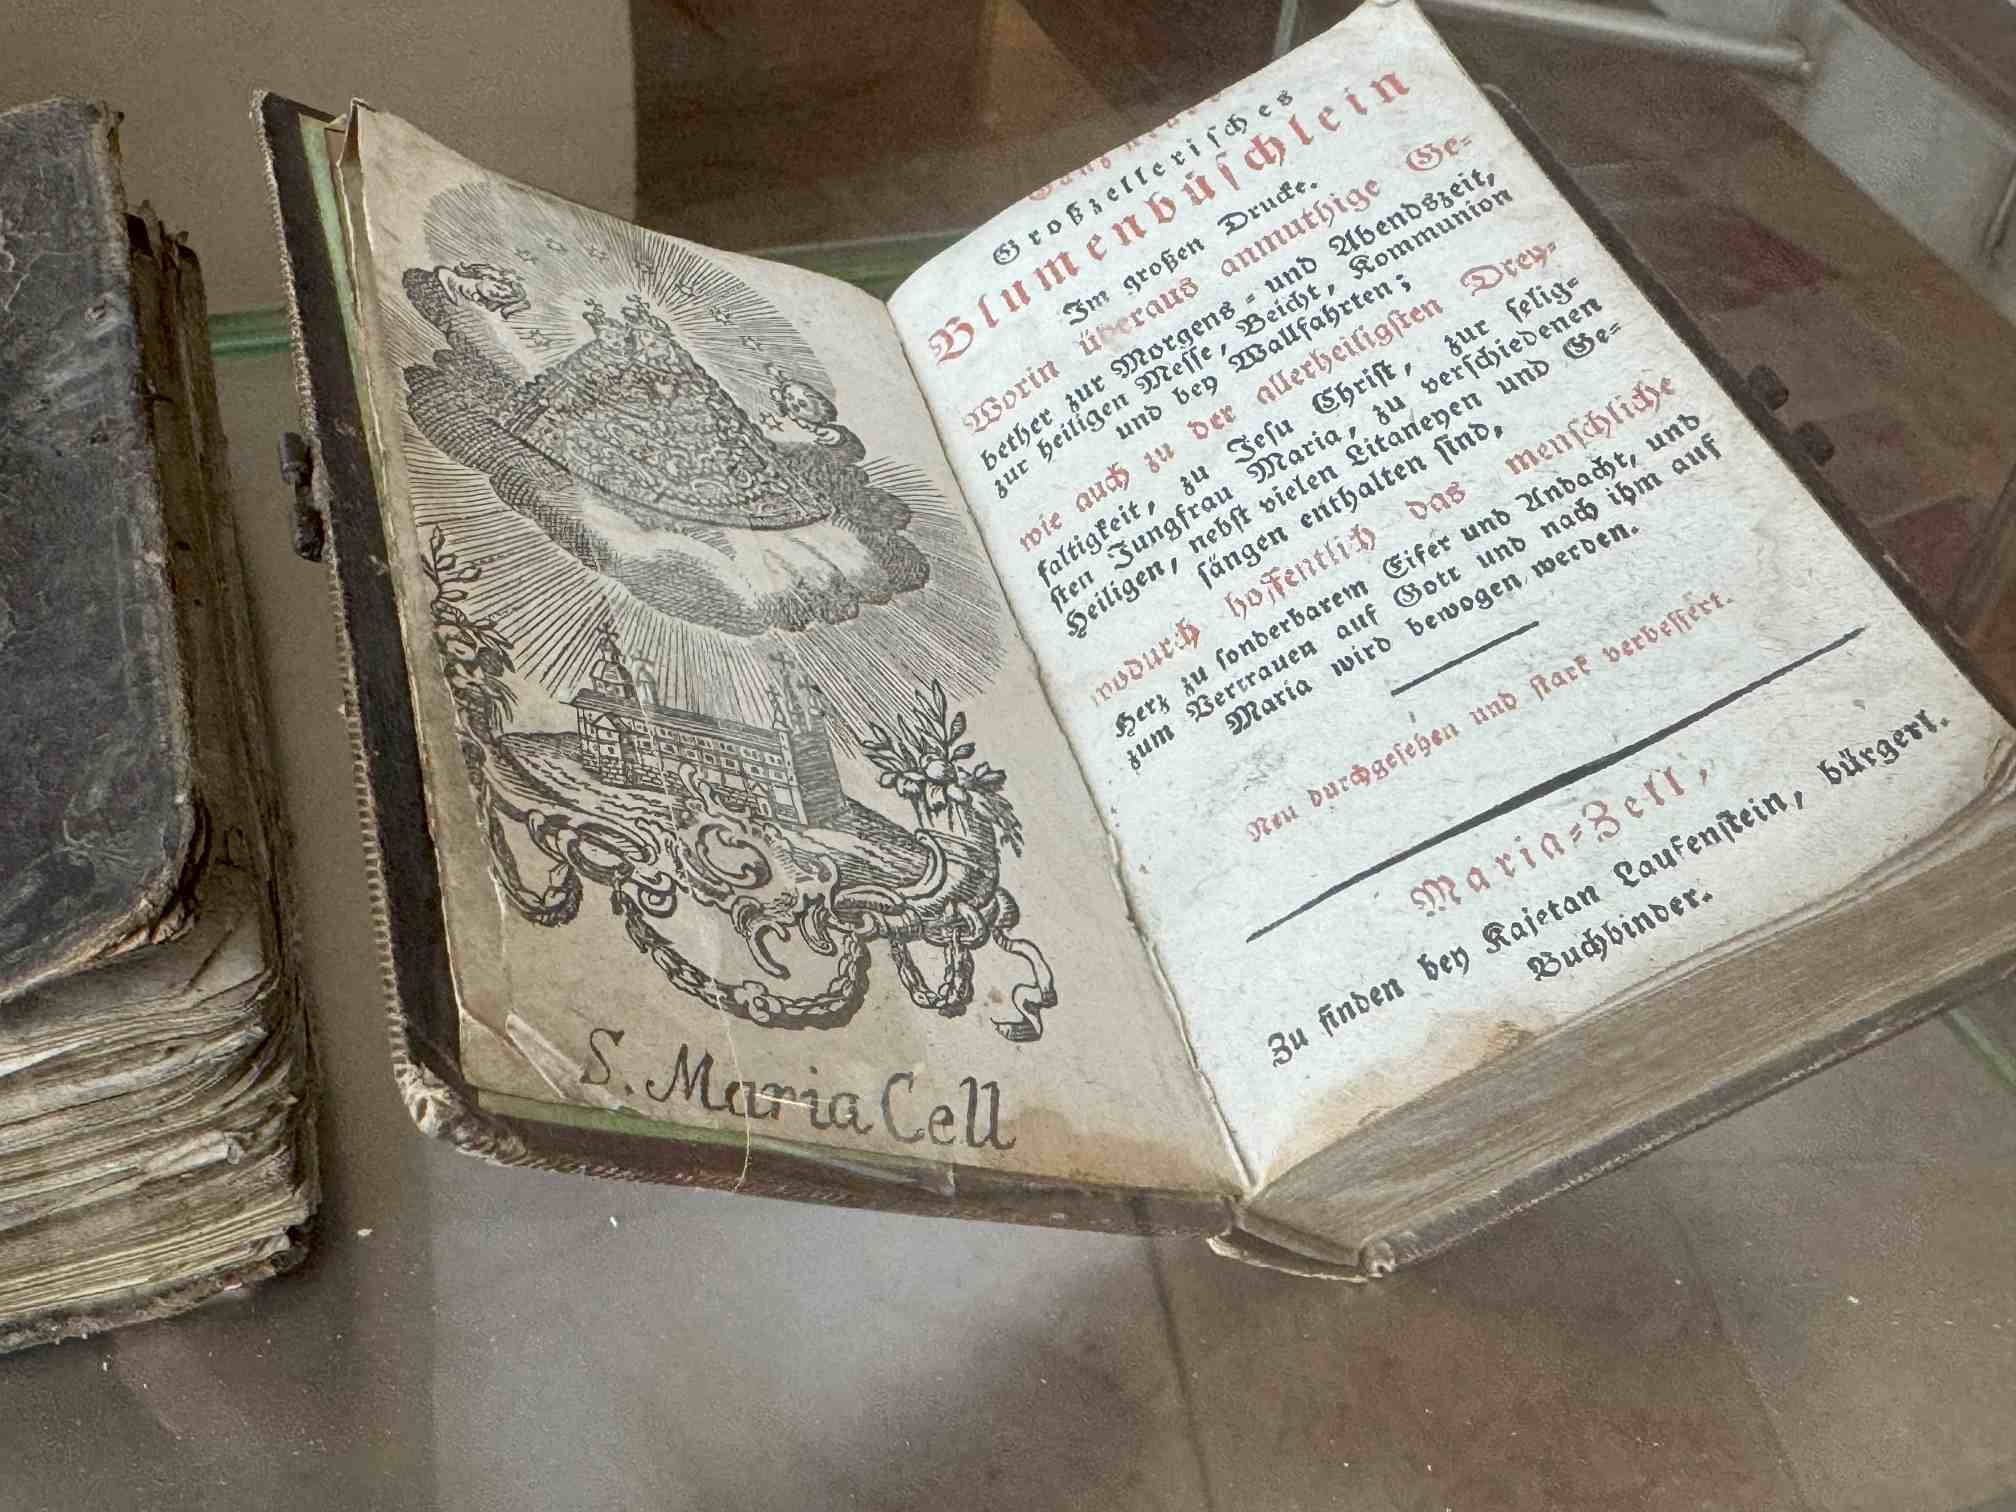 S. Maria Cell
Großzellerisches
Blumenbüschlein
Im großen Drucke.
Worin überaus anmuthige Ge-
bether zur Morgens- und Abendszeit,
zur heiligen Messe, Beicht, Kommunion
und bey Wallfahrten;
wie auch zu der allerheiligsten Drey-
faltigkeit, zu Jesu Christ, zur selig-
sten Jungfrau Maria, zu verschiedenen
Heiligen, nebst vielen Litaneyen und Ge-
sängen enthalten sind,
wodurch hoffentlich das menschliche
Herz zu sonderbarem Eifer und Andacht, und
zum Vertrauen auf Gott und nach ihm auf
Maria wird bewogen werden.
Neu durchgesehen und stark verbessert.
Maria-Zell,
Zu finden bey Kajetan Laufenstein, bürgerl.
Buchbinder.